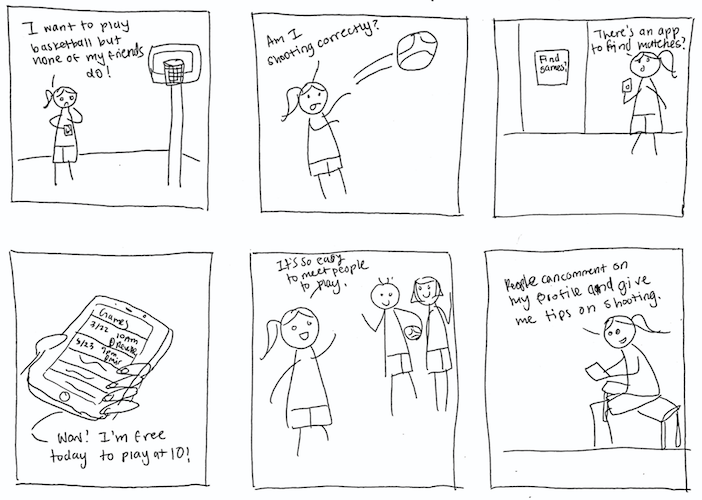 I want to play
basketball but
none of my friends
do!
Am I
shooting correctly?
Find
games!
There's an app
to find matches?
Games
3/22 10AM
3/23 7pm
Wow! I'm free
today to play at 10!
It's so easy
to meet people
to play.
People can comment on
my profile and give
me tips on shooting.